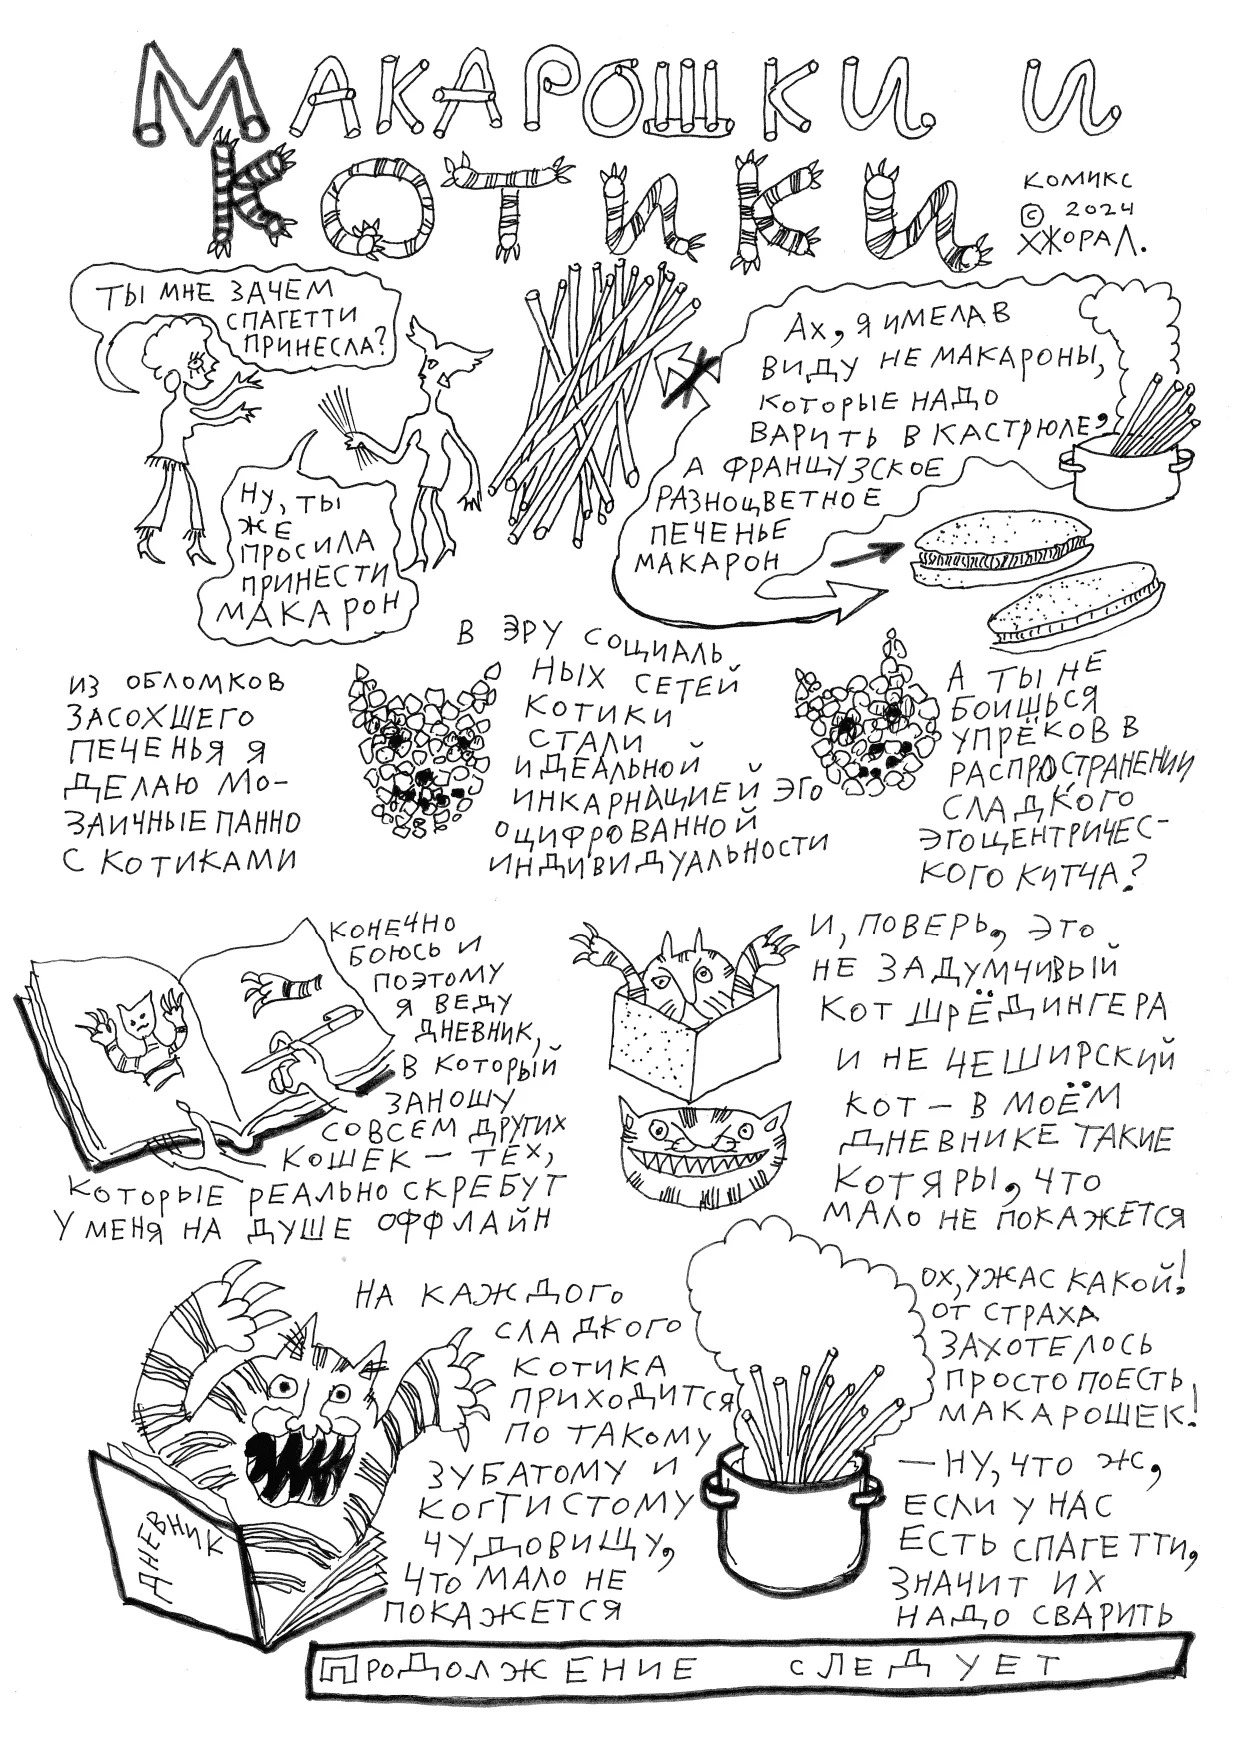 МАКАРОШКИ И
КОТИКИ
КОМИКС
© 2024
ХЖОРАЛ.
ТЫ МНЕ ЗАЧЕМ
СПАГЕТТИ
ПРИНЕСЛА?
НУ, ТЫ
ЖЕ
ПРОСИЛА
ПРИНЕСТИ
МАКАРОН
АХ, Я ИМЕЛА В
ВИДУ НЕ МАКАРОНЫ,
КОТОРЫЕ НАДО
ВАРИТЬ В КАСТРЮЛЕ,
А ФРАНЦУЗСКОЕ
РАЗНОЦВЕТНОЕ
ПЕЧЕНЬЕ
МАКАРОН
ИЗ ОБЛОМКОВ
ЗАСОХШЕГО
ПЕЧЕНЬЯ Я
ДЕЛАЮ МО-
ЗАИЧНЫЕ ПАННО
С КОТИКАМИ
В ЭРУ СОЦИАЛЬ
НЫХ СЕТЕЙ
КОТИКИ
СТАЛИ
ИДЕАЛЬНОЙ
ИНКАРНАЦИЕЙ ЭГО
ОЦИФРОВАННОЙ
ИНДИВИДУАЛЬНОСТИ
А ТЫ НЕ
БОИШЬСЯ
УПРЁКОВ В
РАСПРОСТРАНЕНИИ
СЛАДКОГО
ЭГОЦЕНТРИЧЕС-
КОГО КИТЧА?
КОНЕЧНО
БОЮСЬ И
ПОЭТОМУ
Я ВЕДУ
ДНЕВНИК,
В КОТОРЫЙ
ЗАНОШУ
СОВСЕМ ДРУГИХ
КОШЕК — ТЕХ,
КОТОРЫЕ РЕАЛЬНО СКРЕБУТ
У МЕНЯ НА ДУШЕ ОФФЛАЙН
И, ПОВЕРЬ, ЭТО
НЕ ЗАДУМЧИВЫЙ
КОТ ШРЁДИНГЕРА
И НЕ ЧЕШИРСКИЙ
КОТ — В МОЁМ
ДНЕВНИКЕ ТАКИЕ
КОТЯРЫ, ЧТО
МАЛО НЕ ПОКАЖЕТСЯ
ДНЕВНИК
НА КАЖДОГО
СЛАДКОГО
КОТИКА
ПРИХОДИТСЯ
ПО ТАКОМУ
ЗУБАТОМУ И
КОГТИСТОМУ
ЧУДОВИЩУ,
ЧТО МАЛО НЕ
ПОКАЖЕТСЯ
ОХ, УЖАС КАКОЙ!
ОТ СТРАХА
ЗАХОТЕЛОСЬ
ПРОСТО ПОЕСТЬ
МАКАРОШЕК!
— НУ, ЧТО Ж,
ЕСЛИ У НАС
ЕСТЬ СПАГЕТТИ,
ЗНАЧИТ ИХ
НАДО СВАРИТЬ
ПРОДОЛЖЕНИЕ СЛЕДУЕТ